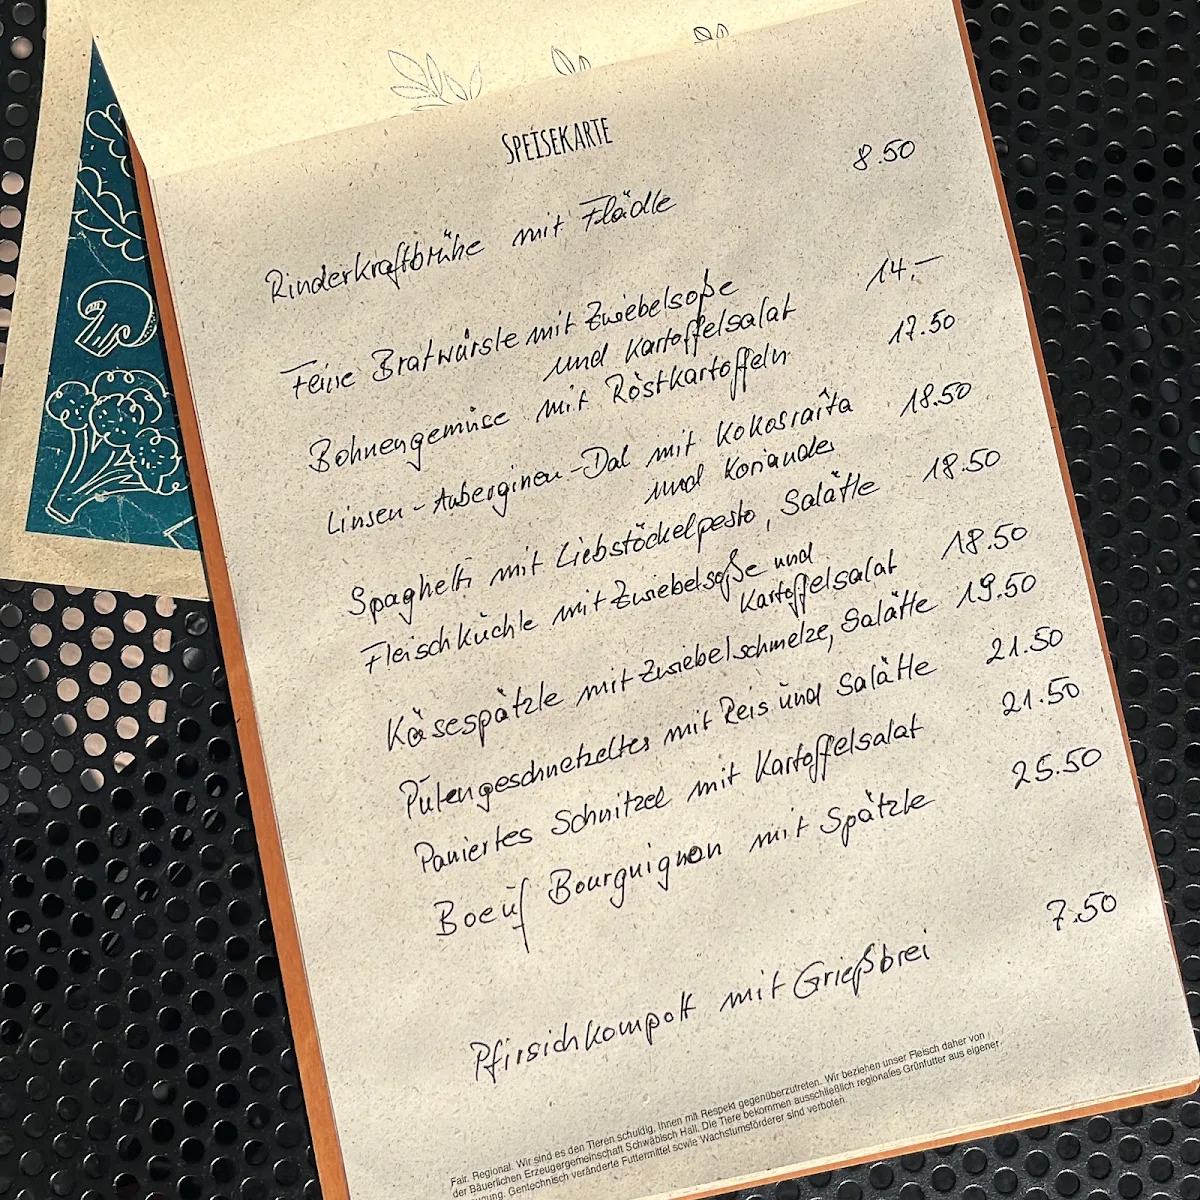 SPEISEKARTE
Rinderkraftbrühe mit Flädle 8.50
Feine Bratwürste mit Zwiebelsoße 14.–
und Kartoffelsalat
Bohnengemüse mit Röstkartoffeln 17.50
Linsen-Auberginen-Dal mit Kokosraita 18.50
und Koriander
Spaghetti mit Liebstöckelpesto, Salätle 18.50
Fleischküchle mit Zwiebelsoße und 18.50
Kartoffelsalat
Käsespätzle mit Zwiebelschmelze, Salätle 19.50
Putengeschnetzeltes mit Reis und Salätle 21.50
Paniertes Schnitzel mit Kartoffelsalat 21.50
Boeuf Bourguignon mit Spätzle 25.50
Pfirsichkompott mit Grießbrei 7.50
Fair. Regional. Wir sind es den Tieren schuldig, Ihnen mit Respekt gegenüberzutreten. Wir beziehen unser Fleisch daher von
der Bäuerlichen Erzeugergemeinschaft Schwäbisch Hall. Die Tiere bekommen ausschließlich regionales Grünfutter aus eigener
Gentechnisch veränderte Futtermittel sowie Wachstumsförderer sind verboten.